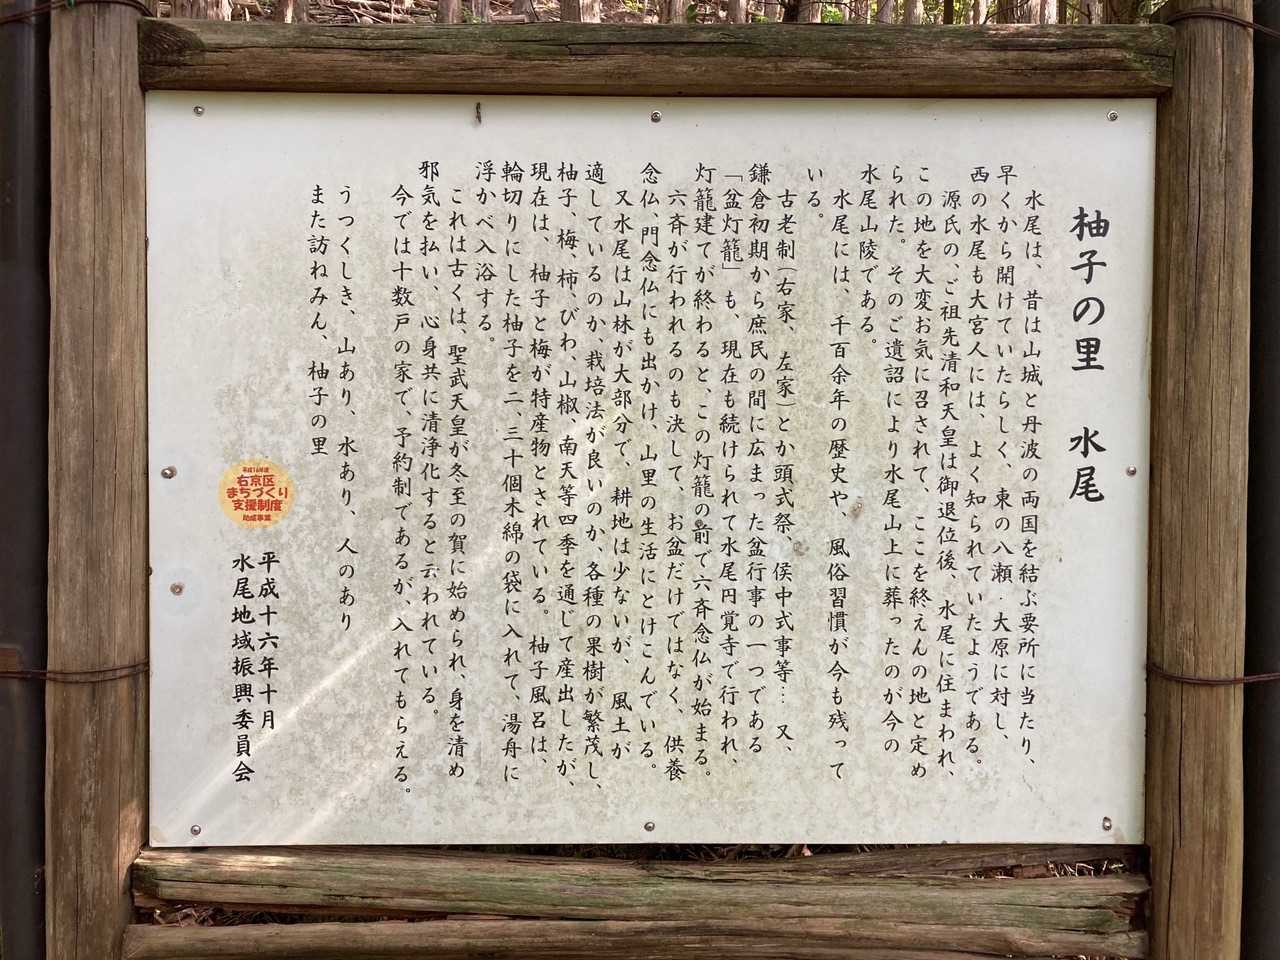 柚子の里　水尾
水尾は、昔は山城と丹波の両国を結ぶ要所に当たり、
早くから開けていたらしく、東の八瀬・大原に対し、
西の水尾も大宮人には、よく知られていたようである。
源氏の、ご祖先清和天皇は御退位後、水尾に住まわれ、
この地を大変お気に召されて、ここを終えんの地と定め
られた。そのご遺詔により水尾山上に葬ったのが今の
水尾山陵である。
水尾には、千百余年の歴史や、風俗習慣が今も残って
いる。
古老制(右家、左家)とか頭式祭、侯中式事等…又、
鎌倉初期から庶民の間に広まった盆行事の一つである
「盆灯籠」も、現在も続けられて水尾円覚寺で行われ、
灯籠建てが終わると、この灯籠の前で六斉念仏が始まる。
六斉が行われるのも決して、お盆だけではなく、供養
念仏、門念仏にも出かけ、山里の生活にとけこんでいる。
又水尾は山林が大部分で、耕地は少ないが、風土が
適しているのか、栽培法が良いのか、各種の果樹が繁茂し、
柚子、梅、柿、びわ、山椒、南天等四季を通じて産出したが、
現在は、柚子と梅が特産物とされている。柚子風呂は、
輪切りにした柚子を二、三十個木綿の袋に入れて、湯舟に
浮かべ入浴する。
これは古くは、聖武天皇が冬至の賀に始められ、身を清め
邪気を払い、心身共に清浄化すると云われている。
今では十数戸の家で、予約制であるが、入れてもらえる。
うつくしき、山あり、水あり、人のあり
また訪ねみん、柚子の里
平成16年度
右京区
まちづくり
支援制度
助成事業
平成十六年十月
水尾地域振興委員会